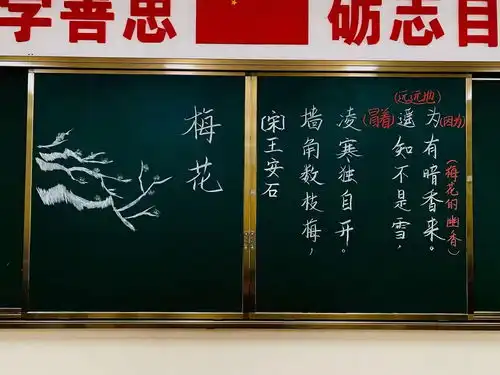 学善思
砺志
梅花
[宋]王安石
墙角数枝梅，
凌寒独自开。
(冒着)
(远远地)
遥知不是雪，
为有暗香来。
(因为)
(梅花的幽香)